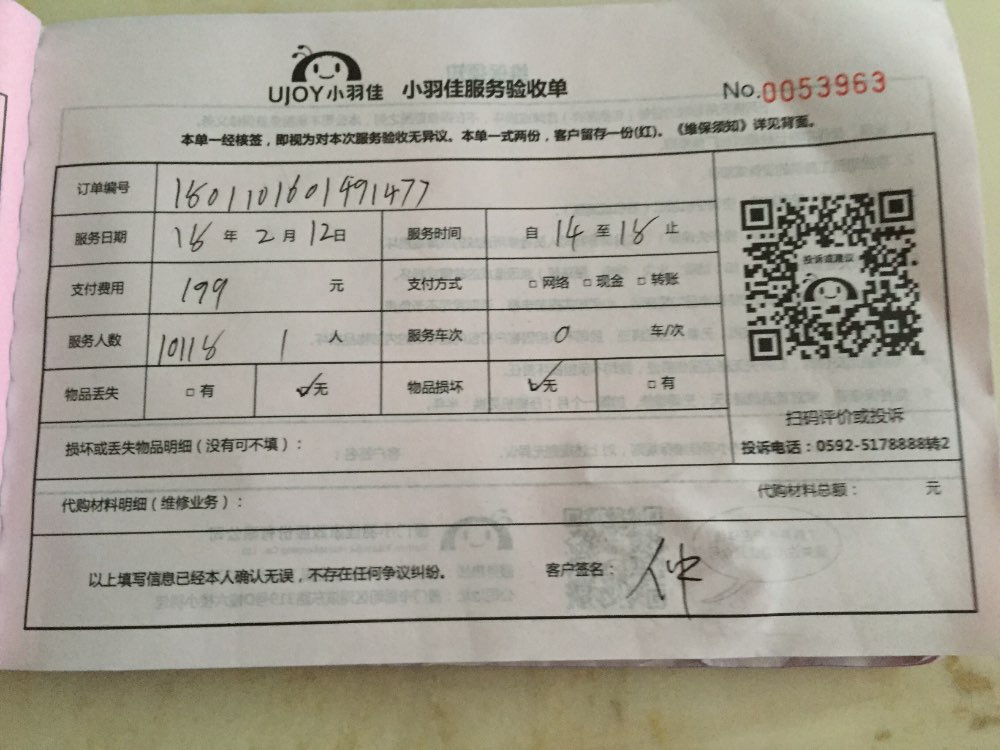 UJOY小羽佳 小羽佳服务验收单 No.0053963
本单一经核签，即视为对本次服务验收无异议。本单一式两份，客户留存一份(红)。《维保须知》详见背面。
订单编号 1801101601491477
服务日期 18 年 2 月 12 日 服务时间 自 14 至 18 止
投诉或建议
支付费用 199 元 支付方式 □ 网络 □ 现金 □ 转账
服务人数 10118 1 人 服务车次 0 车/次
物品丢失 □ 有 ☑ 无 物品损坏 ☑ 无 □ 有
扫码评价或投诉
损坏或丢失物品明细（没有可不填）：
投诉电话：0592-5178888转2
代购材料明细（维修业务）： 代购材料总额： 元
以上填写信息已经本人确认无误，不存在任何争议纠纷。 客户签名：